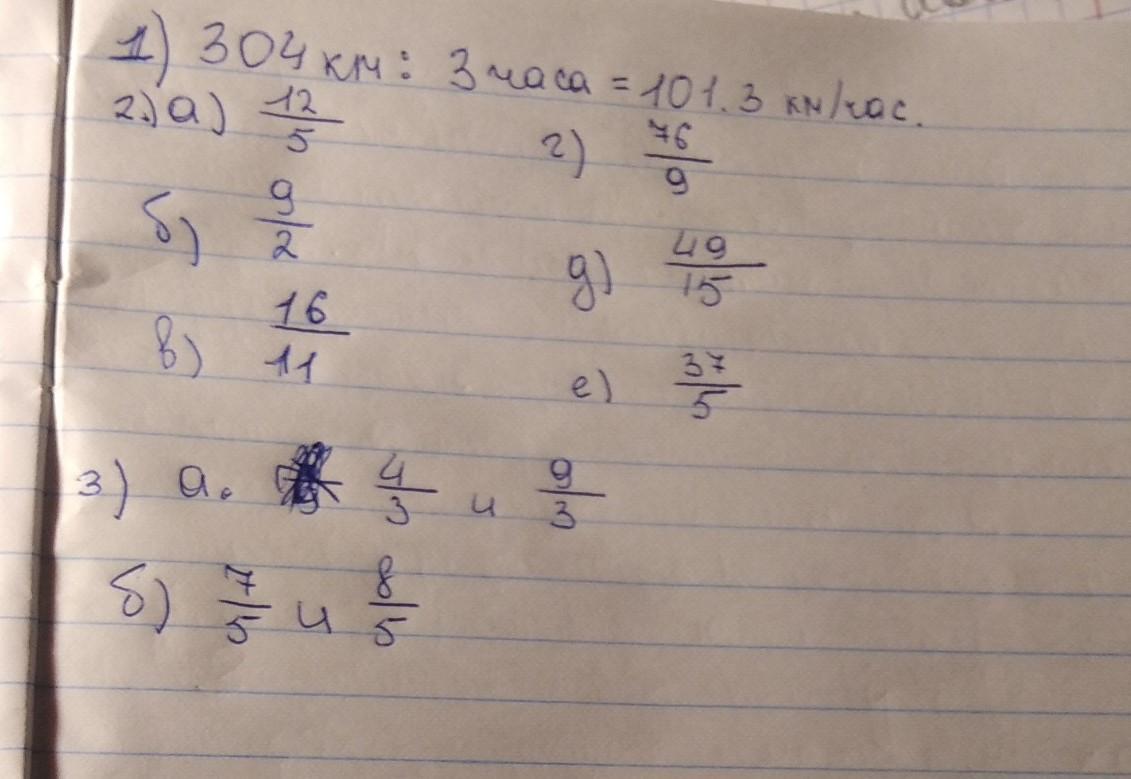 1) 304 км : 3 часа = 101.3 км/час.
2.) а) 12/5 г) 76/9
б) 9/2 д) 49/15
в) 16/11 е) 37/5
3) а. 4/3 и 9/3
б) 7/5 и 8/5